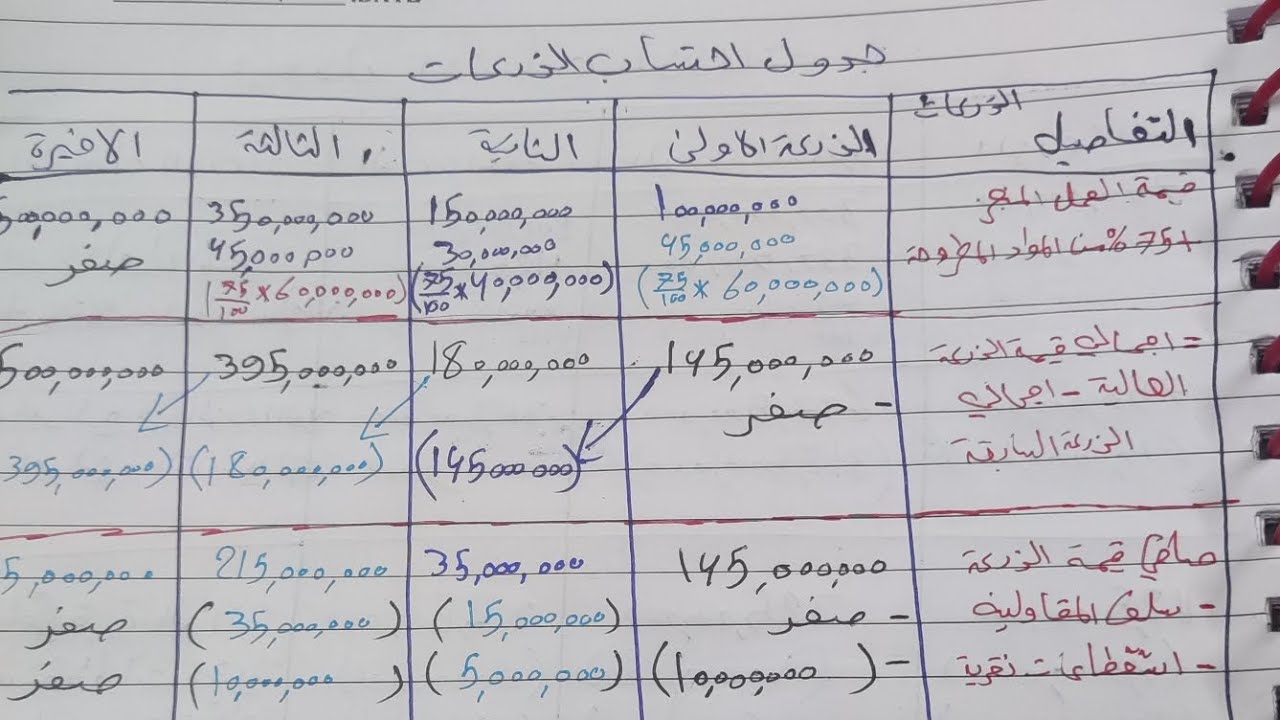 جدول احتساب الذرعات
الذرعات
التفاصيل الذرعة الاولى الثانية الثالثة الاخيرة
قيمة العمل المنجز 100,000,000 150,000,000 350,000,000 00,000,000
+75% من المواد المطروحة 45,000,000 30,000,000 45,000,000 صفر
(75/100 * 60,000,000) (75/100 * 40,000,000) (75/100 * 60,000,000)
= اجمالي قيمة الذرعة 145,000,000 180,000,000 395,000,000 500,000,000
الحالية - اجمالي - صفر
الذرعة السابقة (145000000) (180,000,000) 395,000,000)
صافي قيمة الذرعة 145,000,000 35,000,000 215,000,000 5,000,000
- سلف المقاولية - صفر (15,000,000) (35,000,000) صفر
- استقطاعات نقدية - (10,000,000) (5,000,000) (10,000,000) صفر